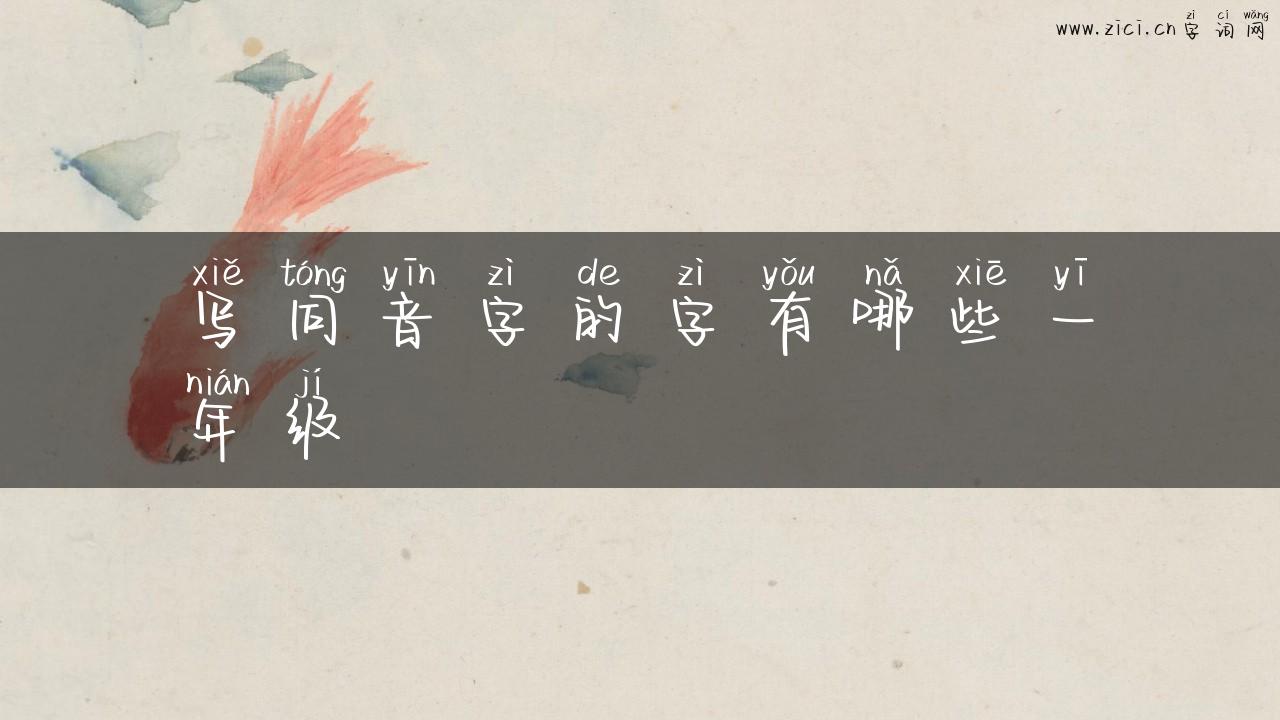 zì cí wǎng
www.zici.cn 字词网
xiě tóng yīn zì de zì yǒu nǎ xiē yī
写同音字的字有哪些一
nián jí
年级